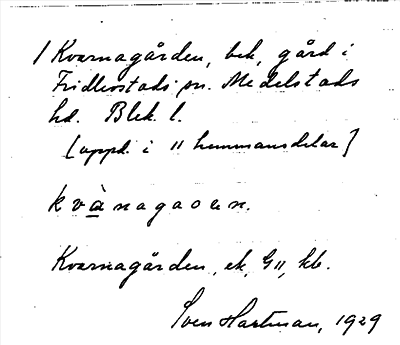 1 Kvarnagården, bek, gård i
Fridlevstads sn. Medelstads
hd. Blek. l.
[uppd. i 11 hemmansdelar]
kvànagaoen.
Kvarnagården, ek, G11, kb.
Sven Hartman, 1929